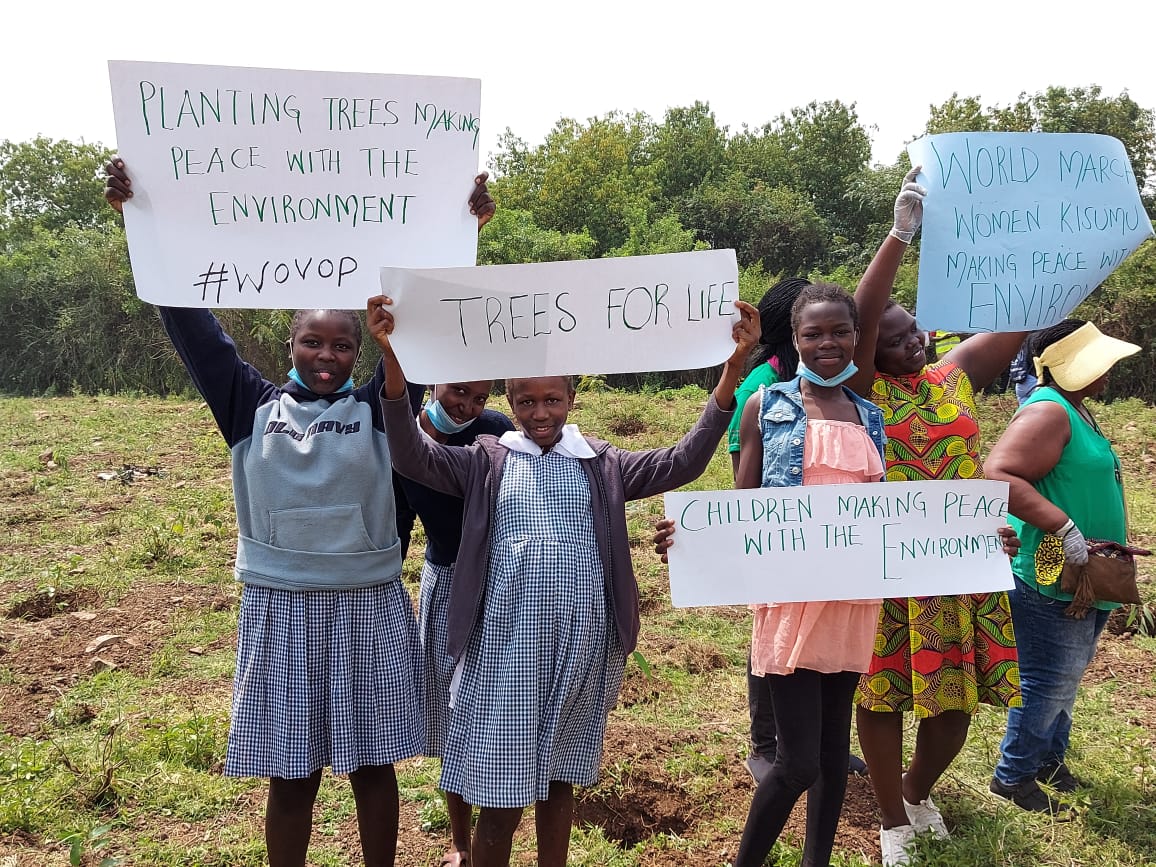 PLANTING TREES MAKING
PEACE WITH THE
ENVIRONMENT
#WOVOP
TREES FOR LIFE
WORLD MARCH
WOMEN KISUMU
MAKING PEACE WITH
ENVIRO
CHILDREN MAKING PEACE
WITH THE ENVIRONMENT
OLD NAVY